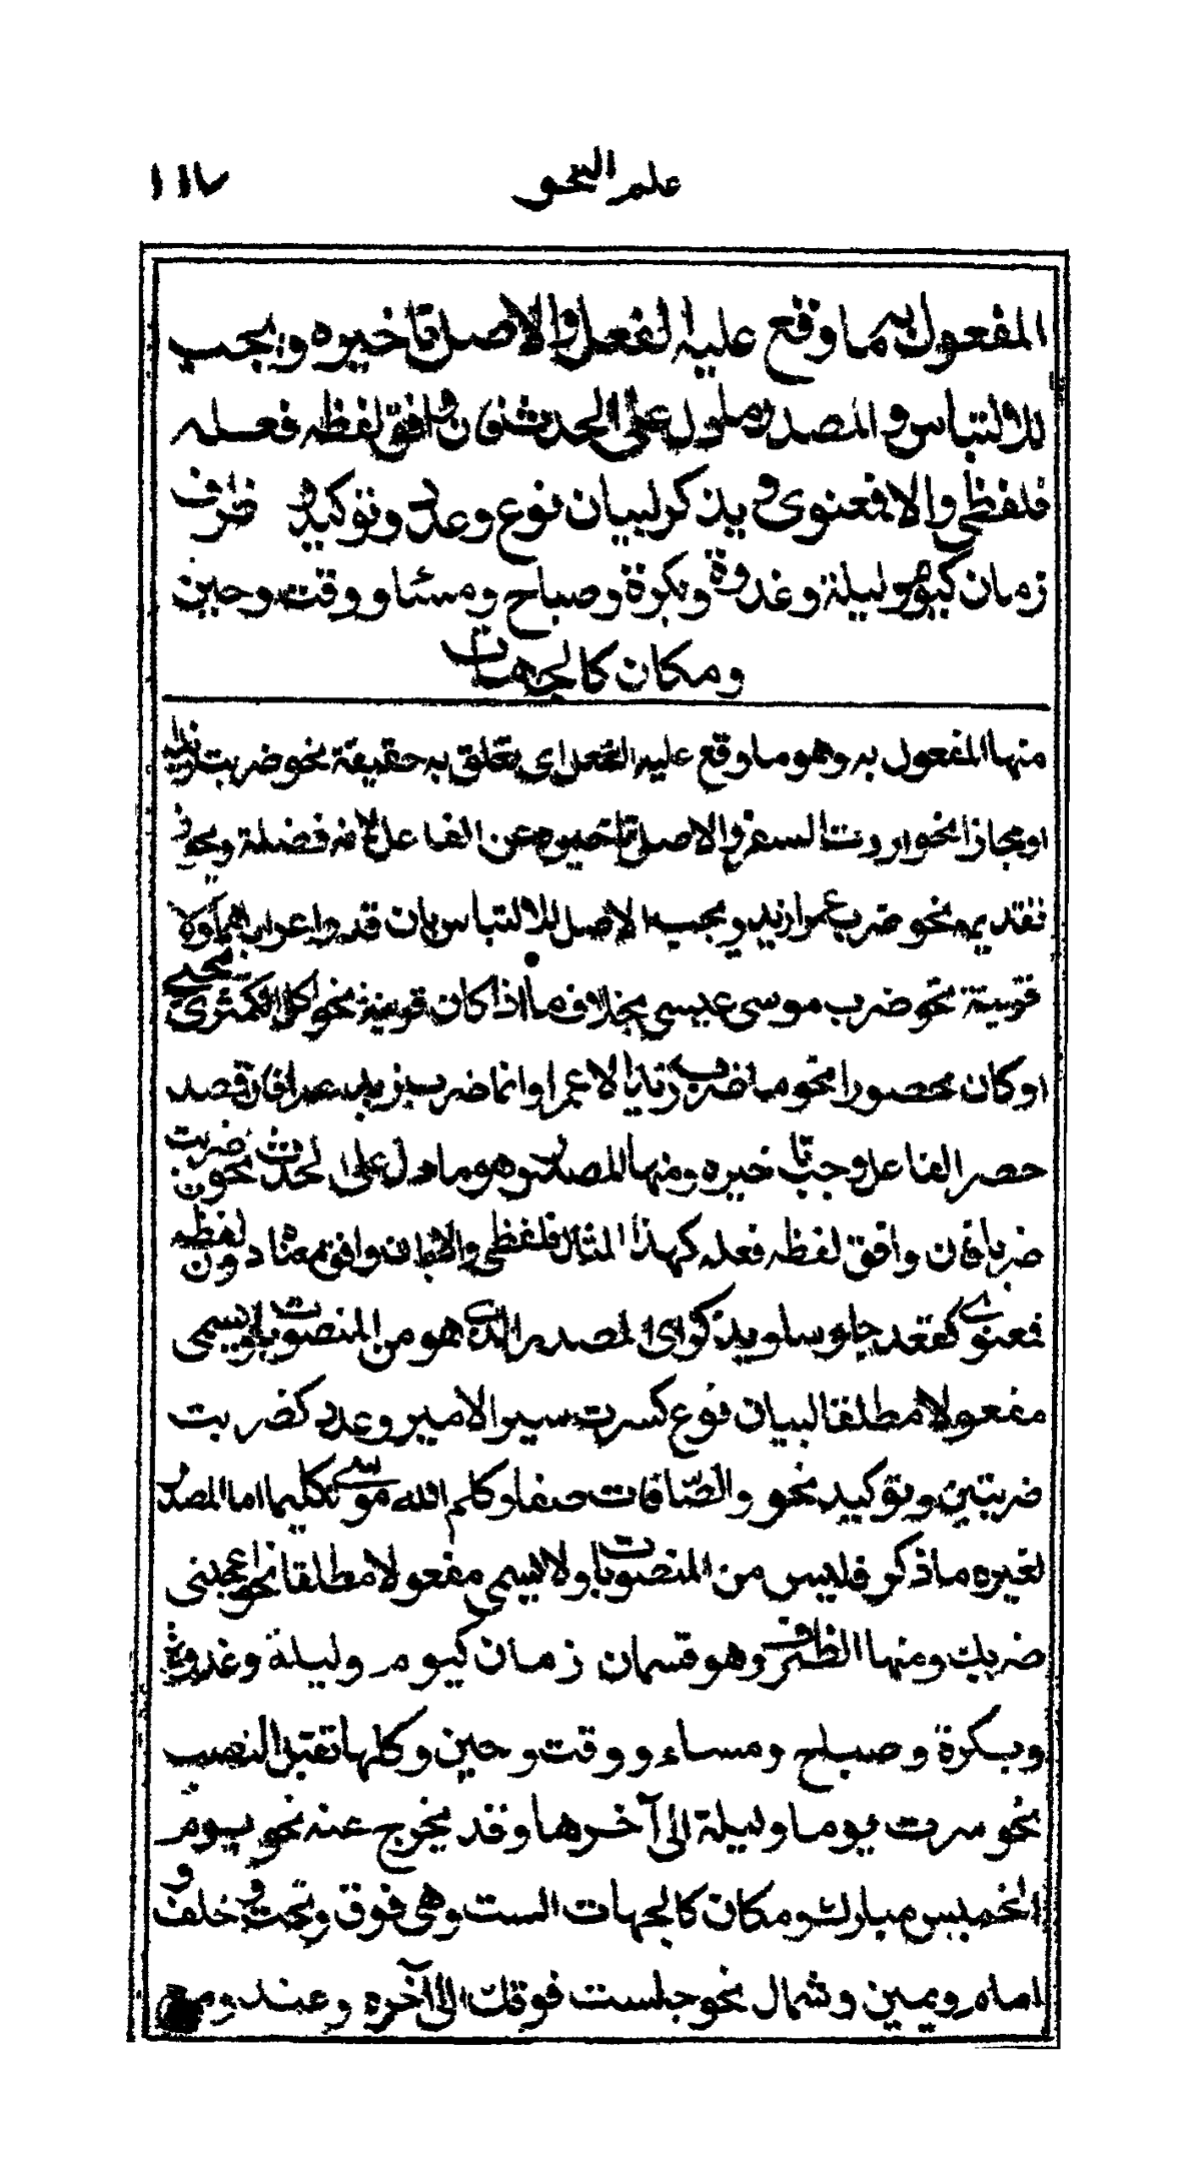 علم النحو ١١٧
المفعول به ما وقع عليه الفعل والاصل تاخيره ويجب
للالتباس والمصدر ما دل على الحدث فان وافق لفظه فعله
فلفظي والا فمعنوى ويذكر لبيان نوع وعدد وتوكيد وظرف
زمان كيوم وليلة وغدوة وبكرة وصباح ومساء ووقت وحين
ومكان كالجهات
منها المفعول به وهو ما وقع عليه الفعل اى تعلق به حقيقة نحو ضربت زيدا
او مجازا نحو اردت السفر والاصل تاخيره عن الفاعل لانه فضلة ويجوز
تقديمه نحو ضرب عمرا زيد ويجب الاصل للالتباس بان قدر اعرابهما ولا
قرينة نحو ضرب موسى عيسى بخلاف ما اذا كان قرينة نحو اكل الكمثرى يحيى
او كان محصورا نحو ما ضرب زيد الا عمرا وانما ضرب زيد عمرا فان قصد
حصر الفاعل وجب تاخيره ومنها المصدر وهو ما دل على الحدث نحو ضربت
ضربا فان وافق لفظه فعله كهذا المثال فلفظى والا بان وافق معناه دون لفظه
فمعنوى كقعد جلوسا ويذكر اى المصدر الذى هو من المنصوبات ويسمى
مفعولا مطلقا لبيان نوع كسرت سير الامير وعدد كضربت
ضربتين وتوكيد نحو والصّافات صفا وكلم الله موسى تكليما اما المصدر
لغيره ما ذكر فليس من المنصوبات ولا يسمى مفعولا مطلقا نحو اعجبنى
ضربك ومنها الظرف وهو قسمان زمان كيوم وليلة وغدوة
وبكرة وصباح ومساء ووقت وحين وكلها تقبل النصب
نحو سرت يوما وليلة الى آخرها وقد يخرج عنه نحو يوم
الخميس مبارك ومكان كالجهات الست وهى فوق وتحت وخلف و
امام ويمين وشمال نحو جلست فوقك الى آخره وعند ومع